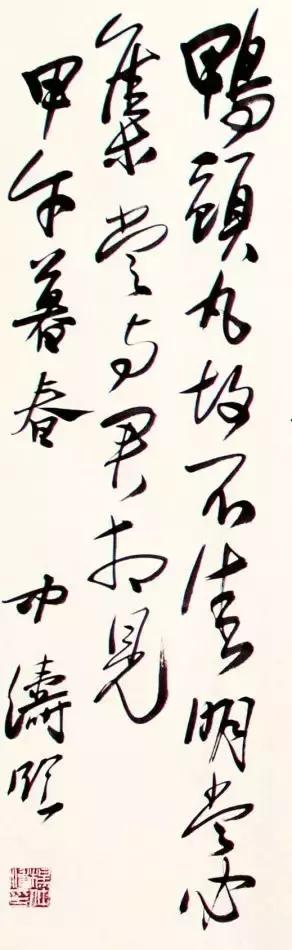 鴨頭丸故不佳明當必
集當與君相見
甲午暮春
濤臨